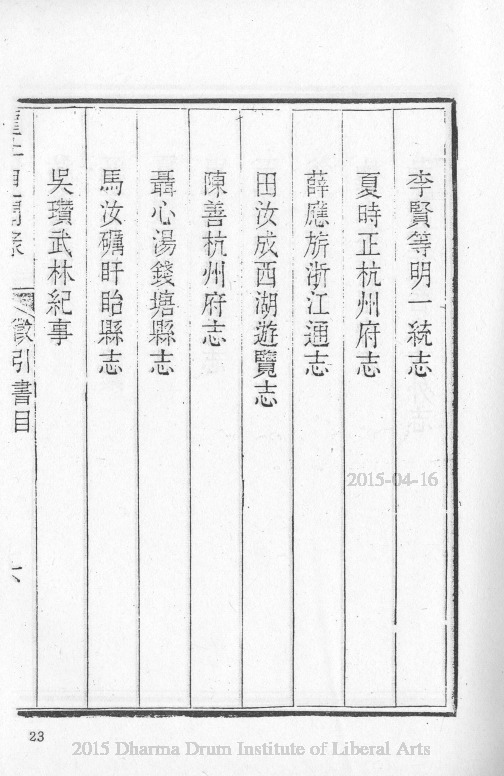 李賢等明一統志
夏時正杭州府志
薛應旂浙江通志
田汝成西湖遊覽志
陳善杭州府志
聶心湯錢塘縣志
馬汝礪盱眙縣志
吳瓚武林紀事
徵引書目
23
2015-04-16
2015 Dharma Drum Institute of Liberal Arts